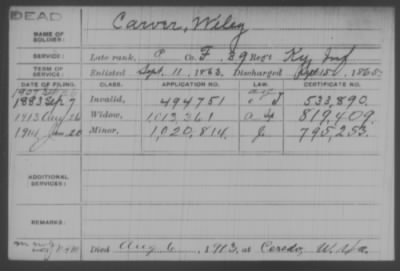 DEAD
NAME OF SOLDIER: Carver, Wiley
SERVICE: Late rank, P Co. F, 39 Reg't Ky. Inf
TERM OF SERVICE: Enlisted Sept. 11, 1863. Discharged 15, 1865.
DATE OF FILING. CLASS. APPLICATION NO. LAW. CERTIFICATE NO.
1883 Sep 7 Invalid, 494751 533,890.
1913 Aug 26 Widow, 1013,361 819,409.
1914 Jan 20 Minor, 1,020,814. 795,253.
ADDITIONAL SERVICES:
REMARKS:
Died Aug 6, 1913, at Ceredo, W. Va.